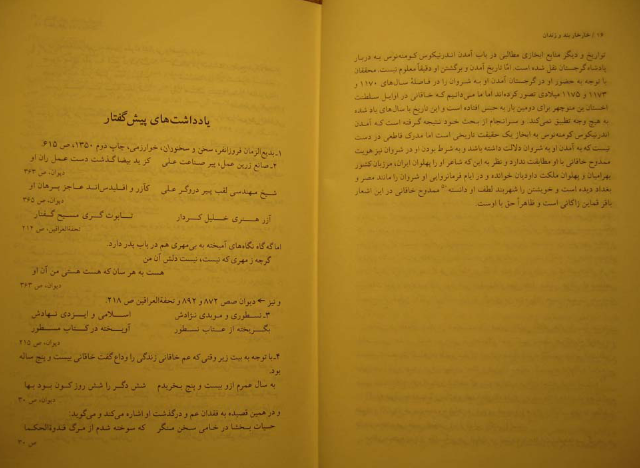 ۱۶ / خارخار بند و زندان
تواریخ و دیگر منابع ابخازی مطالبی در باب آمدن اندرنیکوس کومنه‌نوس به دربار
پادشاه گرجستان نقل شده است. امّا تاریخ آمدن و برگشتن او دقیقاً معلوم نیست. محققان
با توجه به حضور او در گرجستان آمدن او به شروان را در فاصلهٔ سال‌های ۱۱۷۰ و
۱۱۷۳ و ۱۱۷۵ میلادی تصور کرده‌اند اما ما می‌دانیم که خاقانی در اوایل سلطنت
اخستان بن منوچهر برای دومین بار به حبس افتاده است و این تاریخ با سال‌های یاد شده
به هیچ وجه تطبیق نمی‌کند. و سرانجام از بحث خود نتیجه گرفته است که آمدن
اندرنیکوس کومنه‌نوس به ابخاز یک حقیقت تاریخی است اما مدرک قاطعی در دست
نیست که به آمدن او به شروان دلالت داشته باشد و به شرط بودن او در شروان نیز هویت
ممدوح خاقانی با او مطابقت ندارد و نظر به این که شاعر او را پهلوان ایران، مرزبان کشور
بهرامیان و پهلوان ملکت داودیان خوانده و در ایام فرمانروایی او شروان را مانند مصر و
بغداد دیده است و خویشتن را شهربند لطف او دانسته ممدوح خاقانی در این اشعار
باقر قماین زاکانی است و ظاهراً حق با اوست.
یادداشت‌های پیش‌گفتار
۱ـ بدیع‌الزمان فروزانفر، سخن و سخنوران، خوارزمی، چاپ دوم ۱۳۵۰، ص ۶۱۵.
۲ـ صانع زرین عمل، پیر صناعت علی کز ید بیضا گذشت دست عمل ران او
دیوان، ص ۳۶۳
شیخ مهندسی لقب پیر دروگر علی کآزر و اقلیدس‌اند عاجز برهان او
دیوان، ص ۳۶۵
آزر هنری خلیل کردار تابوت گری مسیح گفتار
تحفةالعراقین، ص ۲۱۴
اما گه گاه نگاه‌های آمیخته به بی‌مهری هم در باب پدر دارد.
گرچه ز مهری که نیست، نیست دلش آن من
هست به هر سان که هست هستی من آن او
دیوان، ص ۳۶۳
و نیز ← دیوان صص ۸۷۲ و ۸۹۲ و تحفةالعراقین ص ۲۱۸.
۳ـ نسطوری و موبدی نژادش اسلامی و ایزدی نهادش
بگریخته از عتاب نسطور آویخته در کتاب مسطور
دیوان، ص ۲۱۵
۴ـ با توجه به بیت زیر وقتی که عم خاقانی زندگی را وداع گفت خاقانی بیست و پنج ساله
بود.
به سال عمرم ازو بیست و پنج بخریدم شش دگر را شش روز کون بود بها
دیوان، ص ۳۰
و در همین قصیده به فقدان عم و درگذشت او اشاره می‌کند و می‌گوید:
حیات بخشا در خامی سخن منگر که سوخته شدم از مرگ قدوةالحکما
ص ۳۰